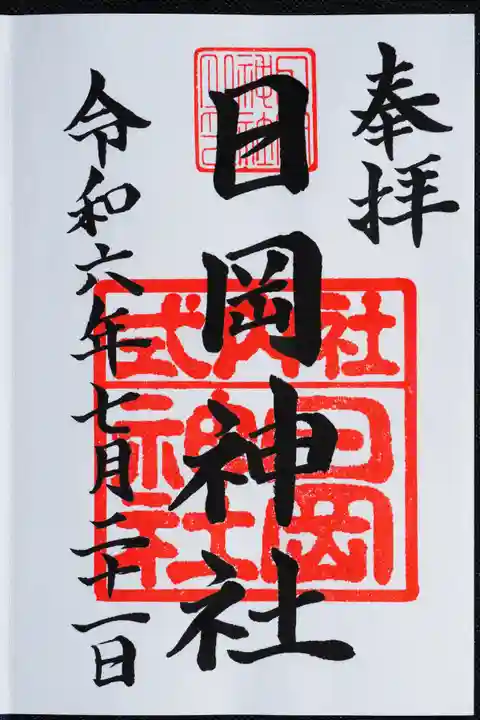 奉拝
日岡神社
令和六年七月二十一日
式内社
日岡神社